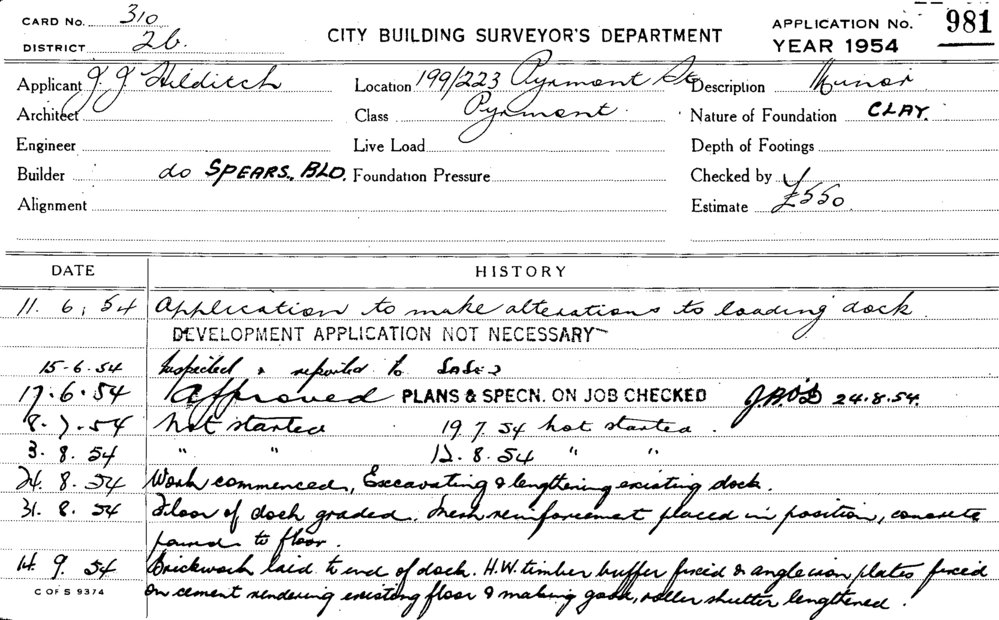 CARD No. 310
DISTRICT 2b.
CITY BUILDING SURVEYOR'S DEPARTMENT
APPLICATION No. 981
YEAR 1954
Applicant J. J. Hilditch Location 199/223 Pyrmont St. Description Minor
Architect Class Pyrmont. Nature of Foundation CLAY.
Engineer Live Load Depth of Footings
Builder do SPEARS. BLD. Foundation Pressure Checked by
Alignment Estimate £550.
DATE HISTORY
11. 6. 54 Application to make alterations to loading dock.
DEVELOPMENT APPLICATION NOT NECESSARY
15-6-54 Inspected & reported to
17.6.54 Approved PLANS & SPECN. ON JOB CHECKED 24.8.54.
8.7.54 Not started 19 7 54 not started.
3. 8. 54 " " 12.8.54 " "
24. 8. 54 Work commenced, Excavating & lengthening existing dock.
31. 8. 54 Floor of dock graded. reinforcement placed in position, concrete
poured to floor.
14. 9. 54 Brickwork laid to end of dock. H.W. timber buffer fixed & angle iron plates fixed
C OF S 9374 on cement rendering existing floor & making good, roller shutter lengthened.